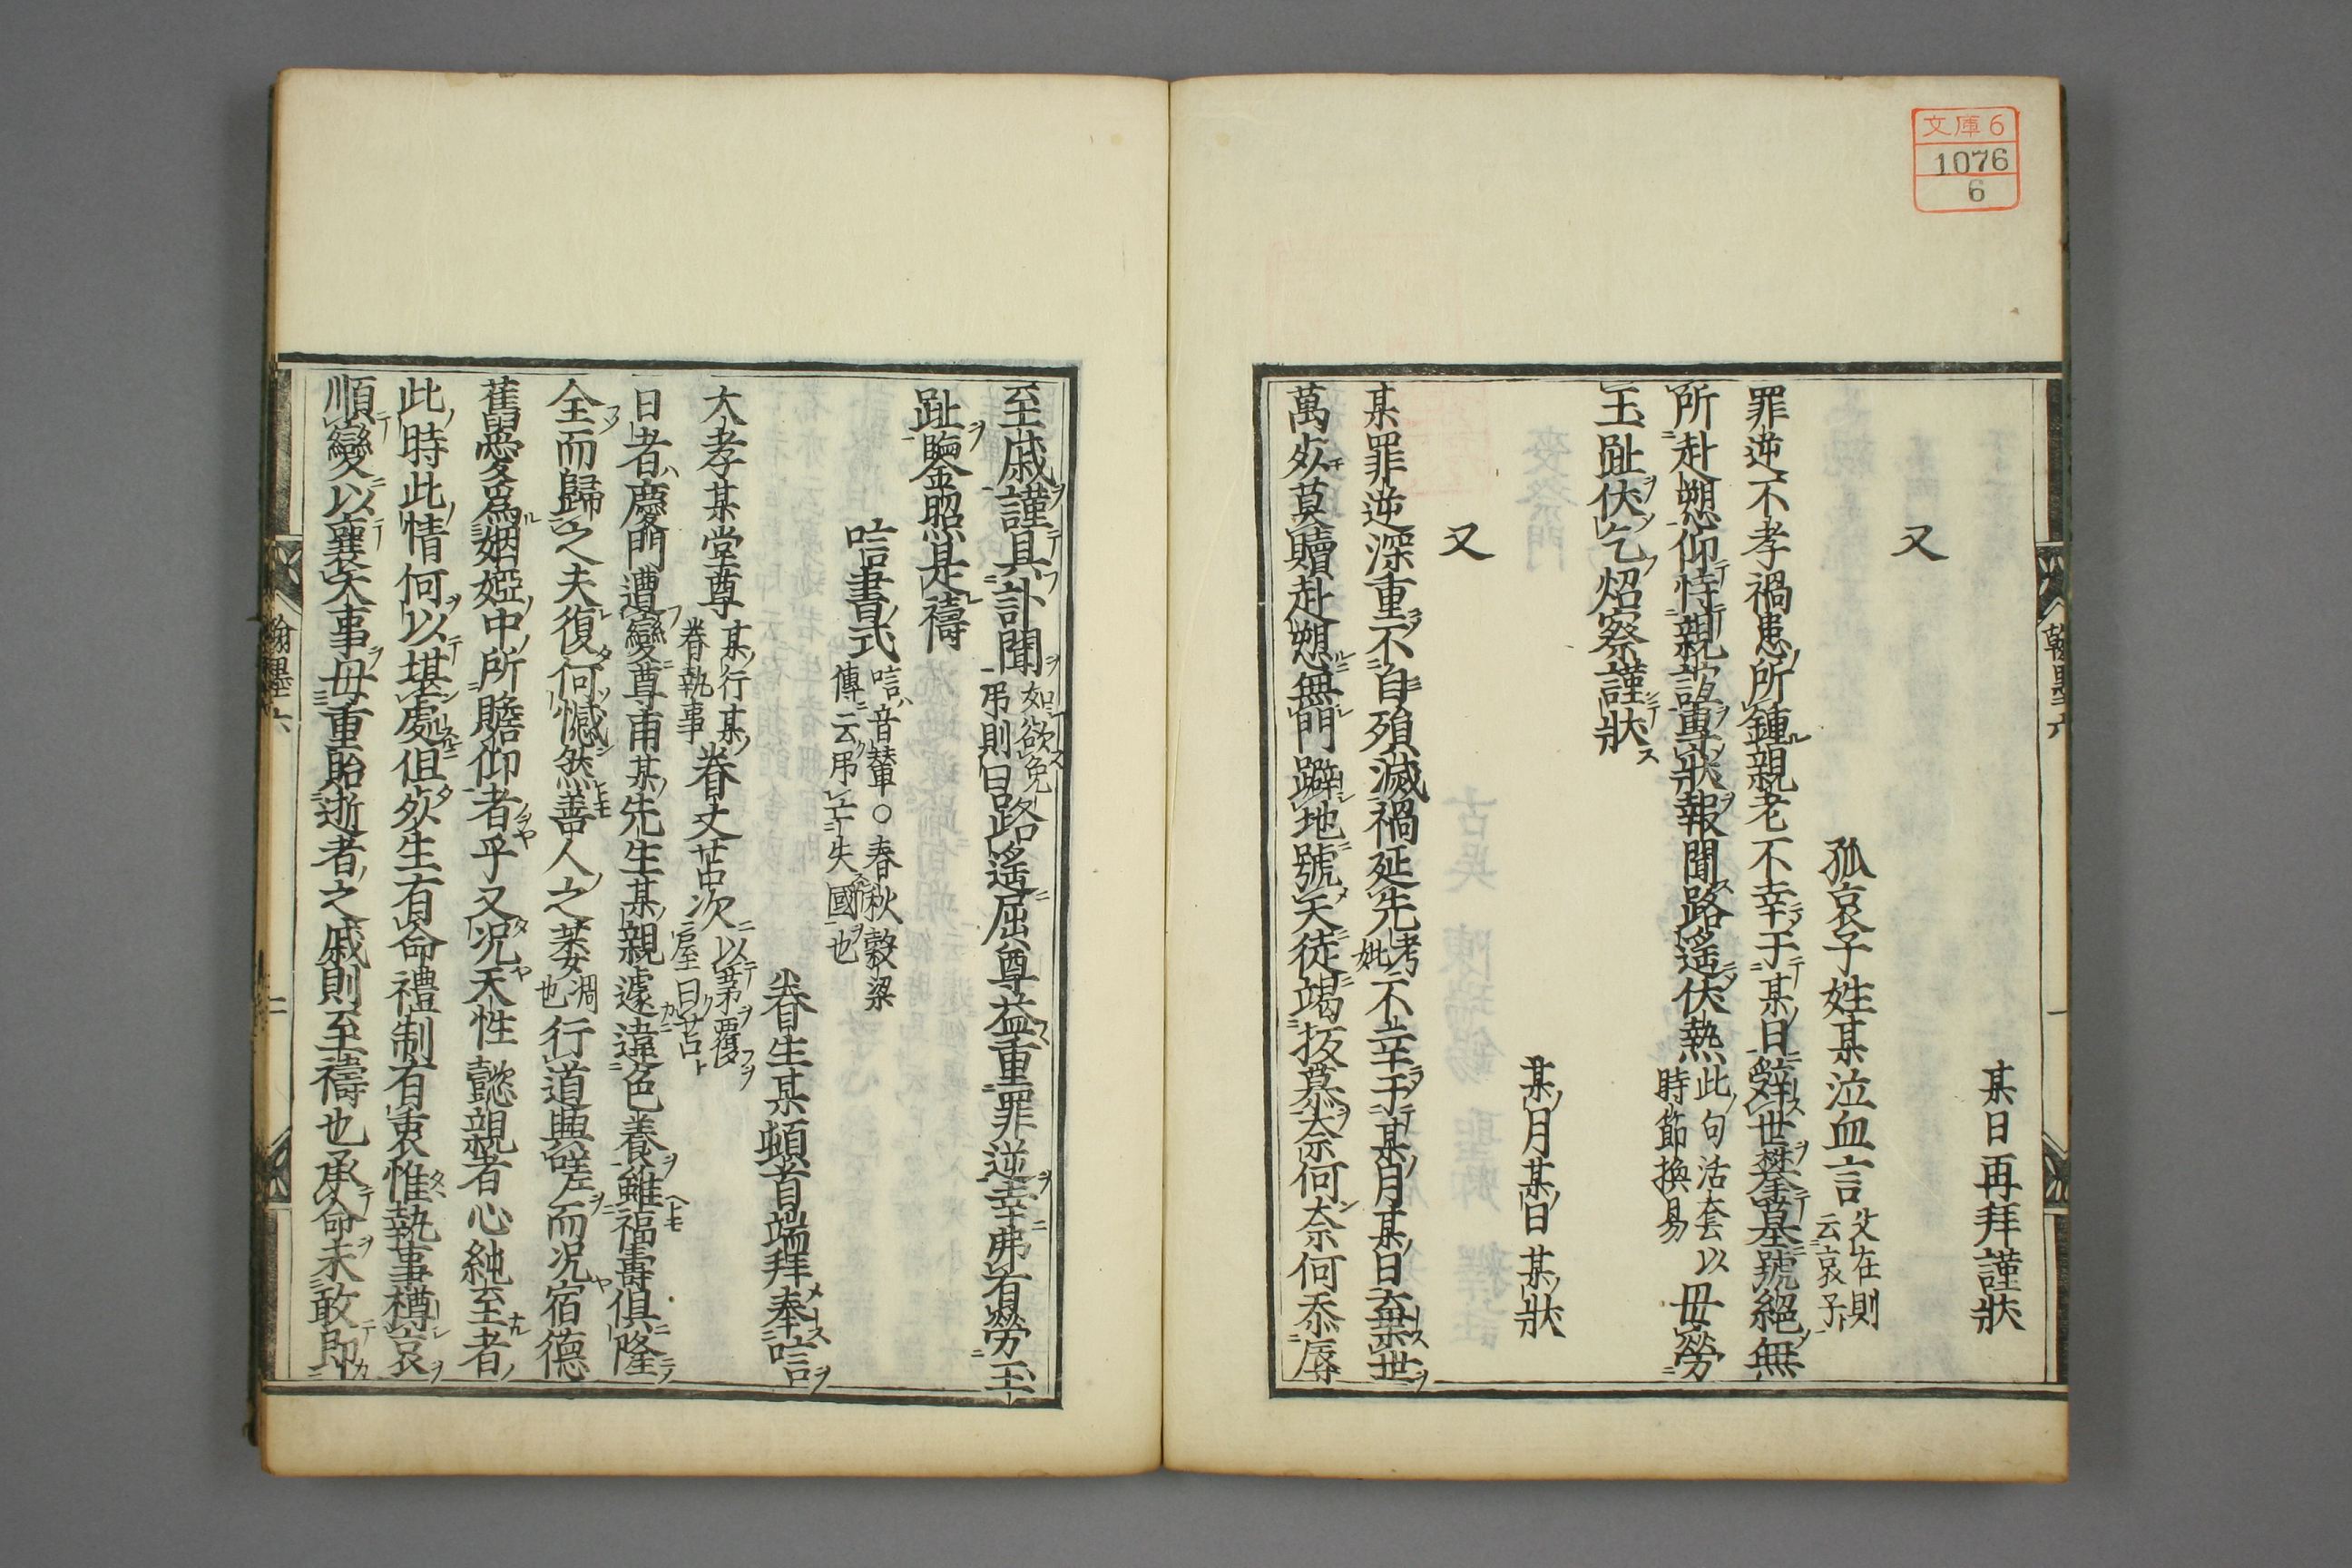 文庫6
1076
6
某日再拜謹狀
又
孤哀子姓某泣血言父在則云哀子
罪逆不孝禍患所鍾親老不幸于某日辭世攀墓號絕無
所赴愬仰恃親誼專狀報聞路遙伏熱此句活套以時節換易毋勞
玉趾伏乞炤察謹狀
某月某日某狀
又
某罪逆深重不自殞滅禍延先考妣不幸于某月某日棄世
萬死莫贖赴愬無門躃地號天徒竭抜慕柰何柰何忝辱
至戚謹具訃聞如欲免吊則曰路遙屈尊益重罪逆幸弗有勞玉
趾鑒照是禱
唁書式唁音輦○春秋穀梁傳云吊亡失國也
眷生某頓首端拜奉唁
大孝某堂尊某行某眷執事眷丈苫次以茅覆屋曰苫
日者慶門遭變尊甫某先生某親遽違色養雖福壽俱隆
全而歸之夫復何憾然善人之萎凋也行道興嗟而况宿德
舊愛爲姻婭中所瞻仰者乎又况天性懿親者心純至者
此時此情何以堪處但死生有命禮制有衷惟執事樽哀
順變以襄大事毋重貽逝者之戚則至禱也承命未敢即
翰墨六
二
翰墨六
一